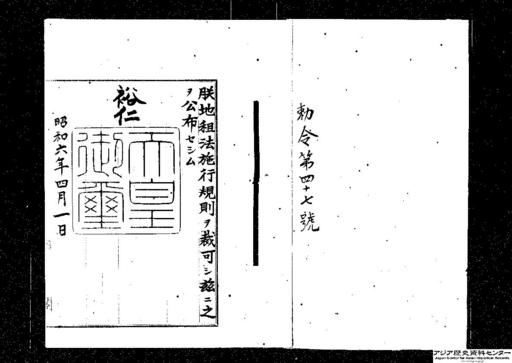 勅令第四十七號
朕地租法施行規則ヲ裁可シ玆ニ之
ヲ公布セシム
裕仁
天皇
御璽
昭和六年四月一日
アジア歴史資料センター
Japan Center for Asian Historical Records